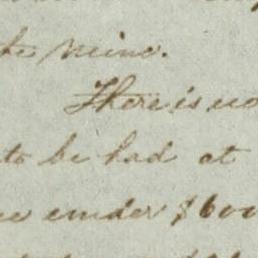 mine.
There is no
to be had at
under $600